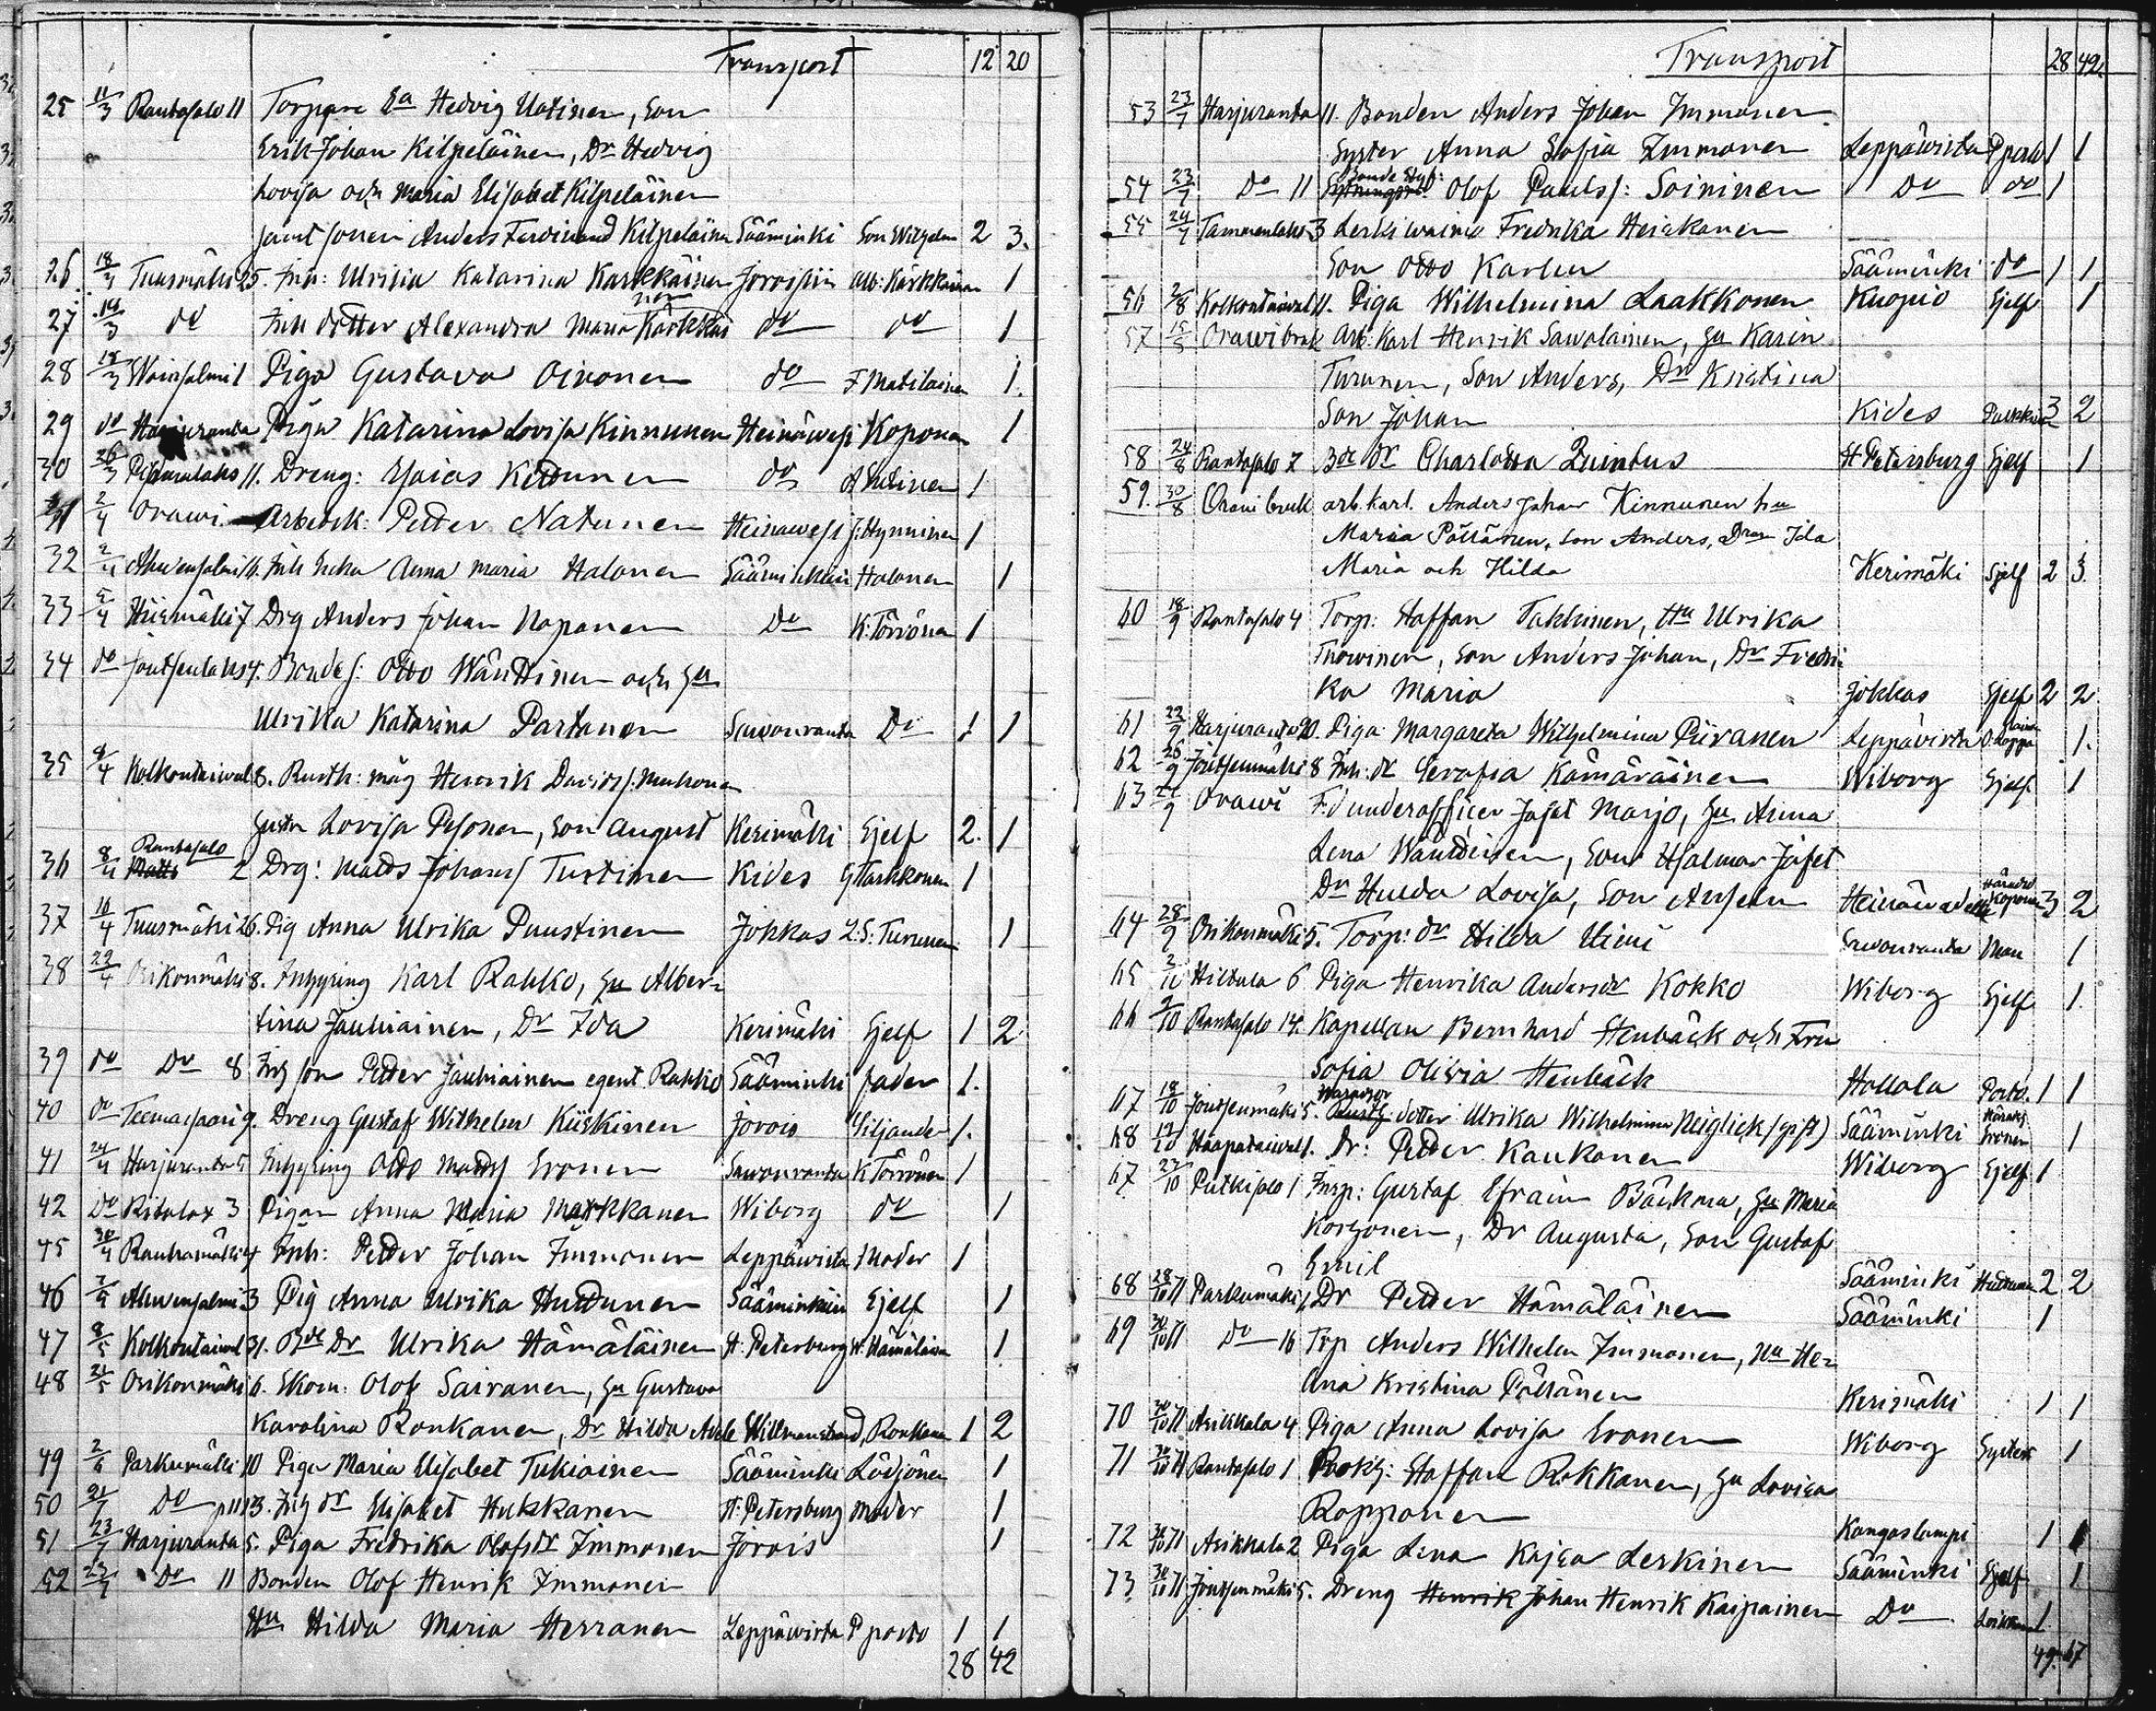 Transport 12 20
25 11/3 Rantasalo 11 Torpare Ea Hedvig Uotinen, Son
Erik Johan Kilpeläinen, Dr Hedvig
Lovisa och Maria Elisabet Kilpeläinen
samt sonen Anders Ferdinand Kilpeläinen Sääminki Son Wilhelm 2 3.
26. 18/3 Tuusmäki 25. Inh: Ulrika Katarina Karkkäinen Jorois Alb: Karkkäinen 1
27 18/3 do Inh dotter Alexandra Maria Kärkkäinen do do 1
28 18/3 Woinsalmi 1 Piga Gustava Oinonen do F. Matilainen 1.
29 do Harjuranta Piga Katarina Lovisa Kinnunen Heinäwesi Koponen 1
30 26/3 11. Dreng: Esaias Kettunen do 1
31 2/4 Orawi Arbetsk: Petter Natunen Heinäwesi J. Hynninen 1
32 2/4 Ahwensalmi 16. Inh Enka Anna Maria Halonen Sääminki Halonen 1
33 5/4 Hiismäki 7 Drg Anders Johan Noponen Do K. Törrönen 1
34 do Joutsenlaks 4. Bondes: Otto Wänttinen och Hu
Ulrika Katarina Partanen Sawonranta Do 1 1
35 8/4 Kolkontaiwal 8. Rusth: måg Henrik Davids: Muhonen
Hustru Lovisa Pesonen, Son August Kerimäki Sjelf 2. 1
36 8/4 Rantasalo 2 Drg: Matts Johans Turtinen Kides G Tarkkonen 1
37 16/4 Tuusmäki 26. Pig Anna Ulrika Puustinen Jokkas L. S. Turunen 1
38 22/4 Osikonmäki 8. Inhysing Karl Rahko, Hu Alber-
tina Jauhiainen, Dr Ida Kerimäki Sjelf 1 2
39 do Do 8 Inh son Petter Jauhiainen egent. Rahko Sääminki fader 1.
40 do Teemassaari 9. Dreng Gustaf Wilhelm Kiiskinen Jorois Siljander 1.
41 24/4 Harjuranta 5 Inhysing Otto Matts Eronen Sawonranta K Törrönen 1
42 Do Ritolax 3 Pigan Anna Maria Markkanen Wiborg do 1
45 30/4 Rauhamäki 4 Inh: Petter Johan Immonen Leppäwirta Moder 1
46 7/5 Ahwensalmi 3 Pig Anna Ulrika Huttunen Sääminki Sjelf 1
47 8/5 Kolkontaiwal 31. Bde Dr Ulrika Hämäläinen St. Petersburg W. Hämäläinen 1
48 21/5 Osikonmäki 6. Skom: Olof Sairanen, Hu Gustava
Karolina Ronkanen, Dr Hilda Adele Willmanstrand, Ronkanen 1 2
49 2/6 Parkumäki 10 Piga Maria Elisabet Tukiainen Sääminki Lödjönen 1
50 21/7 Do 13. Inh dr Elisabet Hukkanen St. Petersburg Moder 1
51 23/7 Harjuranta 5. Piga Fredrika Olofsdr Immonen Jorois 1
52 23/7 Do 11 Bonden Olof Henrik Immonen
Hu Hilda Maria Herranen Leppäwirta P porto 1 1
28 42
Transport 28 42.
53 23/7 Harjuranta 11. Bonden Anders Johan Immonen
Syster Anna Sofia Immonen Leppäwirta P porto 1 1
54 23/7 Do 11 Bonde Olof Pauls: Soininen Do do 1
55 24/7 Tammenlaks 3 Leski waimo Fredrika Heiskanen
Son Otto Karlin Sääminki do 1 1
56 2/8 Kolkontaiwal 11. Piga Wilhelmina Laakkonen Kuopio Sjelf 1
57 15/8 Orawi bruk Arb: Karl Henrik Sawolainen, Hu Karin
Turunen, Son Anders, Dr Kristina
Son Johan Kides 3 2
58 24/8 Rantasalo 7 Bde dr Charlotta Quintus St Petersburg Sjelf 1
59. 30/8 Orawi bruk arb. karl. Anders Johan Kinnunen hu
Maria Pöllänen, son Anders, Drar Ida
Maria och Hilda Kerimäki Sjelf 2 3.
60 18/9 Rantasalo 4 Torp: Staffan Takkinen, Hu Ulrika
Ihowinen, Son Anders Johan, Dr Fredri-
ka Maria Jokkas Sjelf 2 2
61 22/9 Harjuranta 20. Piga Margareta Wilhelmina Piiranen Leppävirta 1.
62 26/9 Joutsenmäki 8 Inh: dr Serafia Kämäräinen Wiborg Sjelf 1
63 27/9 Orawi F.d underofficer Jafet Marjo, Hu Anna
Lena Wänttinen, Son Hjalmar Jafet
Dr Hulda Lovisa, Son Anselm Heinäwesi Koponen 3 2
64 28/9 Osikonmäki 5. Torp: dr Hilda Himi Sawonranta Man 1
65 2/10 Hiltula 6 Piga Henrika Andersdr Kokko Wiborg Sjelf 1.
66 9/10 Rantasalo 14. Kapellan Bernhard Stenbäck och Fru
Sofia Olivia Stenbäck Hollola Porto. 1 1
67 18/10 Joutsenmäki 5. dotter Ulrika Wilhelmina Neiglick (gift) Sääminki Eronen 1
68 19/10 Haapataiwal 1. Dr: Petter Kaukonen Wiborg Sjelf 1
67 27/10 Putkisalo 1 Insp: Gustaf Efraim Bäckman, Hu Maria
Korhonen, Dr Augusta, Son Gustaf
Emil Sääminki 2 2
68 28/10 71 Parkumäki 1 Dr Petter Hämäläinen Sääminki 1
69 30/10 71 Do 16 Trp Anders Wilhelm Immonen, Hu He-
lena Kristina Pöllänen Kerimäki 1 1
70 30/10 71 Asikkala 4 Piga Anna Lovisa Eronen Wiborg Syster 1
71 30/10 71 Rantasalo 1 Bookh: Staffan Rokkanen, Hu Lovisa
Ropponen Kangaslampi 1 1
72 30/10 71 Asikkala 2 Piga Lena Kajsa Leskinen Sääminki Sjelf 1
73 30/10 71 Joutsenmäki 5. Dreng Henrik Johan Henrik Kaipainen Do 1
49. 67